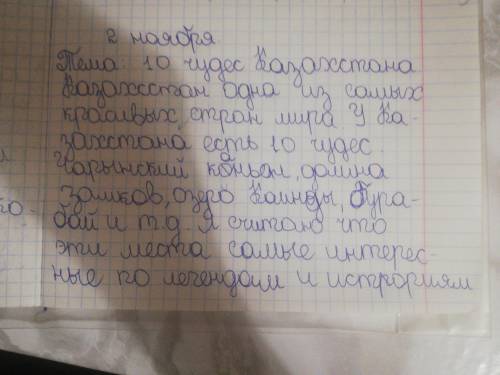 2 ноября
Тема: 10 чудес Казахстана
Казахстан одна из самых
красивых стран мира. У Ка-
захстана есть 10 чудес.
Чарынский каньон, долина
замков, озеро Каинды, Бура-
бай и т.д. Я считаю что
эти места самые интерес-
ные по легендам и исторориям